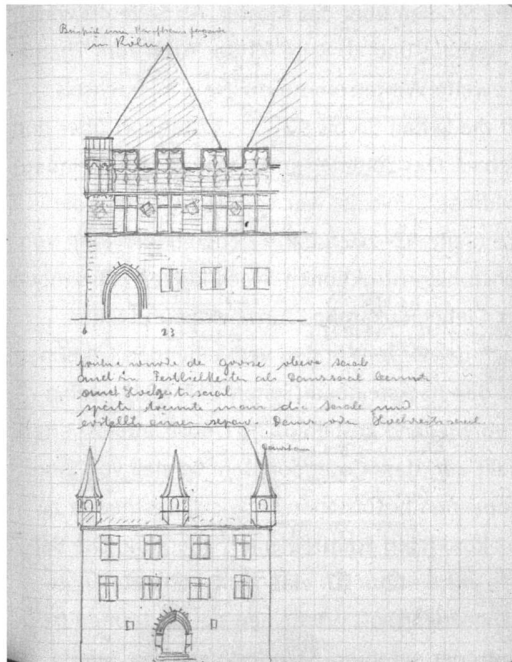 Beispiel einer
in Köln
23
früher wurde de grosse obere Saal
auch in Festlichkeiten als Tanzsaal benutzt
und Hochzeitssaal
später trennte man die Säle und
erstellte einen separ. Tanz oder Hochzeitssaal